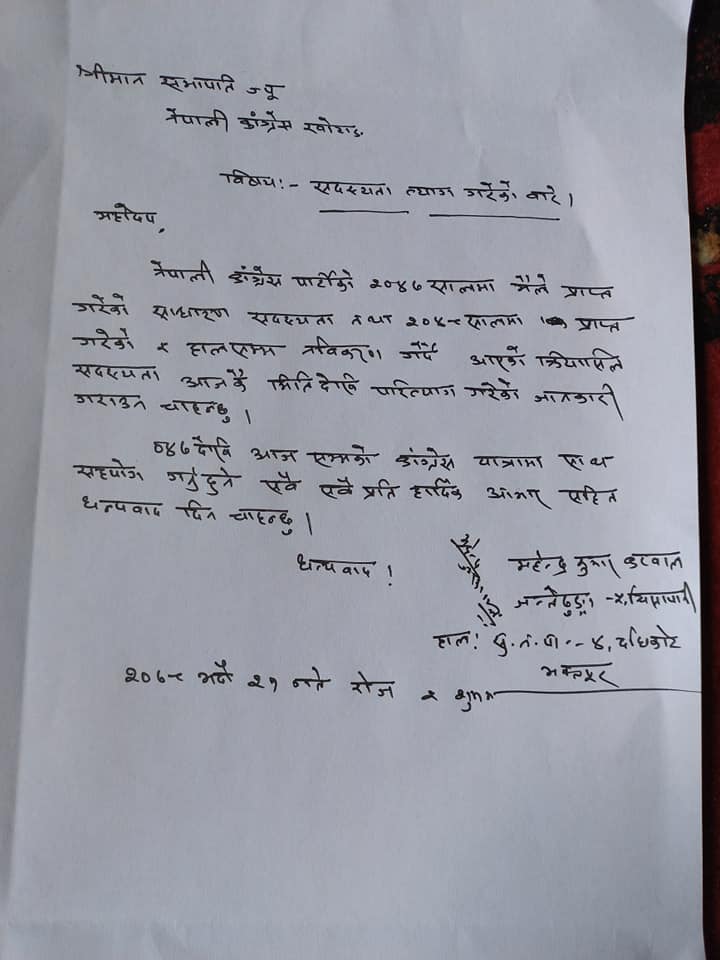 श्रीमान सभापति ज्यू
नेपाली कांग्रेस खोटाङ
विषय:- सदस्यता त्याग गरेको बारे।
महोदय,
नेपाली कांग्रेस पार्टीको २०४७ सालमा मैले प्राप्त
गरेको साधारण सदस्यता तथा २०४८ सालमा प्राप्त
गरेको र हालसम्म नविकरण गर्दै आएको क्रियासिल
सदस्यता आजकै मिति देखि परित्याग गरेको जानकारी
गराउन चाहन्छु।
०४७ देखि आज सम्मको कांग्रेस यात्रामा साथ
सहयोग गर्नुहुने सबै सबै प्रति हार्दिक आभार सहित
धन्यवाद दिन चाहन्छु।
धन्यवाद!
महेन्द्र कुमार
हाल: सु.न.पा.-४, दधिकोट
भक्तपुर
२०७८ भदौ २१ गते रोज २ शुभम